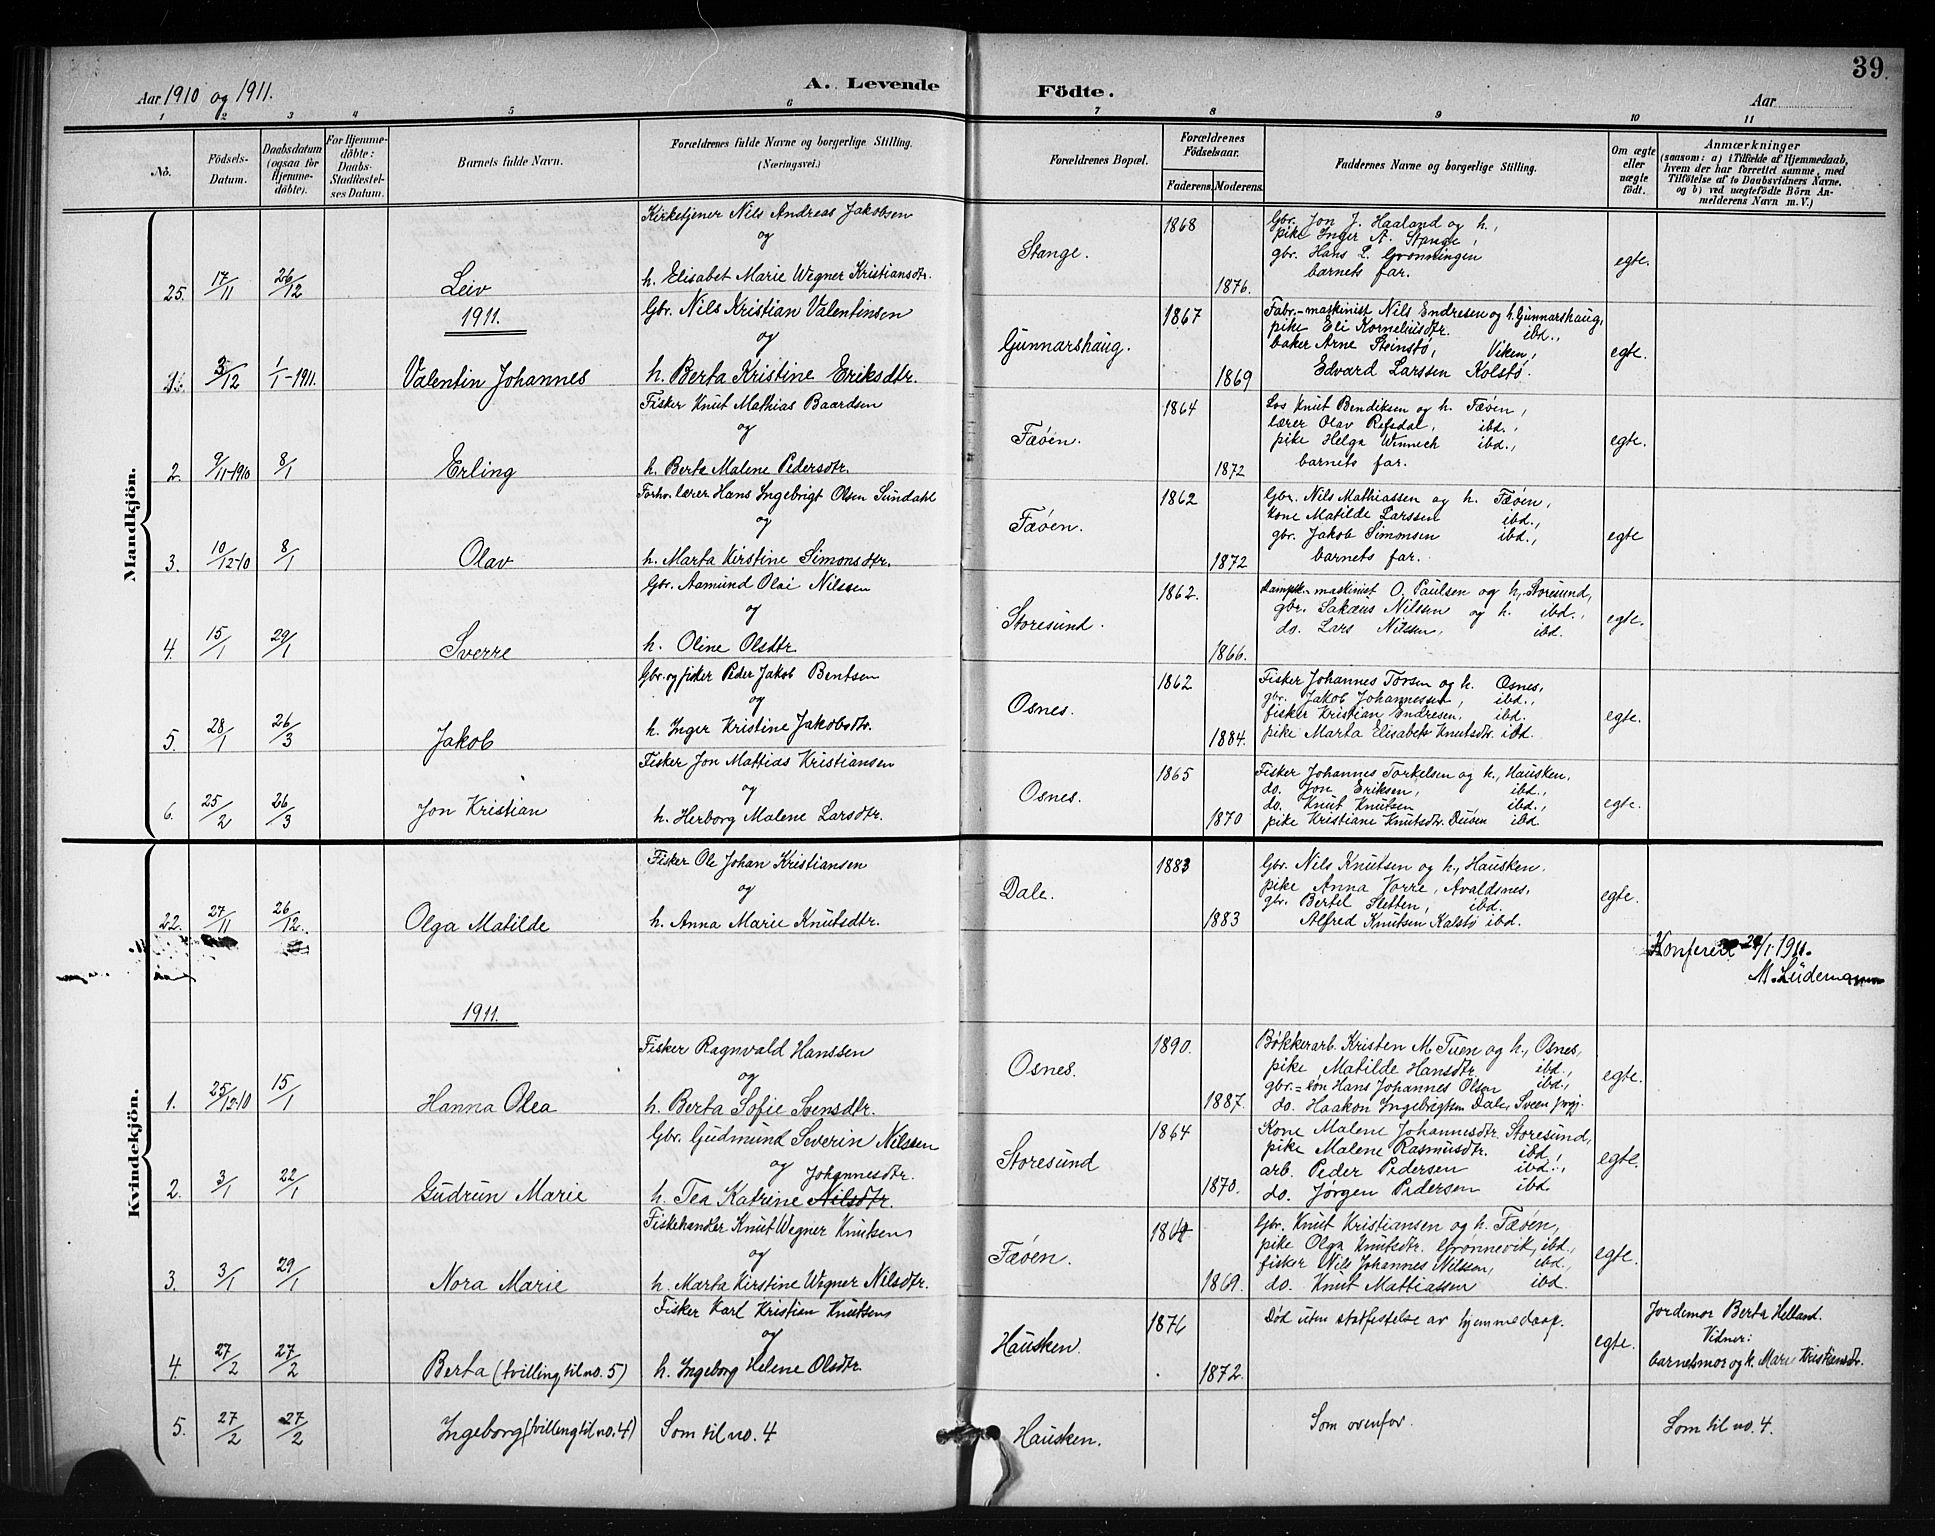 39.
Aar 1910 og 1911.
A. Levende Födte.
Aar
1 2 3 4 5 6 7 8 9 10 11
No.
Födsels-Datum.
Daabsdatum (ogsaa for Hjemme-döbte).
For Hjemme-döbte: Daabs-Stadfæstel-ses Datum.
Barnets fulde Navn.
Forældrenes fulde Navne og borgerlige Stilling.
(Næringsvei.)
Forældrenes Bopæl.
Forældrenes Födselsaar.
Faderens. Moderens.
Faddernes Navne og borgerlige Stilling.
Om ægte eller uægte födt.
Anmærkninger
(saasom: a) i Tilfælde af Hjemmedaab,
hvem der har forrettet samme, med
Tilföielse af to Daabsvidners Navne.
og b) ved uægtefödte Börn An-
melderens Navn m. V.)
Mandkjön.
Kirketjener Nils Andreas Jakobsen
og
25. 17/11 26/12 Leiv h. Elisabet Marie Wegner Kristiansdtr.
Stange. 1868 1876. egte.
Gbr. Jon J. Haaland og h.,
pike Inger A. Stange,
gbr. Hans L. Grønningen
barnets far.
1911.
Gbr. Nils Kristian Valentinsen
og
3/12 1/1-1911. Valentin Johannes h. Berta Kristine Eriksdtr.
Gunnarshaug. 1867 1869 egte.
Fabr.-maskinist Nils Endresen og h. Gunnarshaug,
pike Eli Korneliusdtr. ibd.,
baker Arne Steinstø, Viken,
Edvard Larssen Kolstø.
Fisker Knut Mathias Baardsen
og
2. 9/11-1910 8/1 Erling h. Berta Malene Pedersdtr.
Fæøen. 1864 1872 egte.
Los Knut Bendiksen og h. Fæøen,
lærer Olav Refsdal, ibd.,
pike Helga Winnech ibd.,
barnets far.
Forhv. lærer Hans Ingebrigt Olsen Sundahl
og
3. 10/12-10 8/1 Olav h. Marta Kirstine Simonsdtr.
Fæøen. 1862 1872 egte
Gbr. Nils Mathiassen og h. Fæøen,
kone Matilde Larssen ibd.,
gbr. Jakob Simonsen ibd.,
barnets far.
Gbr. Aamund Olai Nilssen
og
4. 15/1 29/1 Sverre h. Oline Olsdtr
Storesund. 1862. 1866. egte.
Dampsk.-maskinist O. Paulsen og h., Storesund,
gbr. Sakæus Nilsen og h. ibd.,
do. Lars Nilsen, ibd.
Gbr. og fisker Peder Jakob Bentsen
og
5. 28/1 26/3 Jakob h. Inger Kristine Jakobsdtr.
Osnes. 1862 1884. egte.
Fisker Johannes Torsen og h. Osnes,
gbr. Jakob Johannessen, ibd.,
fisker Kristian Endresen, ibd.
pike Marta Elisabet Knutsdtr. ibd.
Fisker Jon Mattias Kristiansen
og
6. 25/2 26/3 Jon Kristian h. Herborg Malene Larsdtr.
Osnes. 1865 1870 egte.
Fisker Johannes Torkelsen og h., Hausken,
do. Jon Eriksen, ibd.,
do. Knut Knutsen ibd.,
pike Kristiane Knutsdtr. ibd
Kvindekjön.
Fisker Ole Johan Kristiansen
og
22. 27/11 26/12. Olga Matilde h. Anna Marie Knutsdtr.
Dale. 1883 1883 egte.
Gbr. Nils Knutsen og h., Hausken.
pike Anna Vorre, Avaldsnes,
gbr. Bertil Sletten, ibd.
Alfred Knutsen Kalstø ibd.
Konferert 29/1. 1911.
M. Lüdemann
1911.
Fisker Ragnvald Hanssen
og
1. 25/12-10 15/1 Hanna Olea h. Berta Sofie Svensdtr.
Osnes. 1890. 1887. egte.
Bøkkerarb. Kristen M. Tuen og h., Osnes,
pike Matilde Hansdtr. ibd.,
gbr.-søn Hans Johannes Olsen ibd.,
do. Haakon Ingebrigtsen Dale, Sveen prgj.
Gbr. Gudmund Severin Nilssen
og Johannesdtr.
2. 3/1 22/1 Gudrun Marie h. Tea Katrine Nilsdtr.
Storesund 1864 1870. egte.
Kone Malene Johannesdtr. Storesund,
pike Malene Rasmusdtr. ibd,
arb. Peder Pedersen ibd.,
do. Jørgen Pedersen ibd.
Fiskehandler Knut Wegner Knutsen
og
3. 3/1 29/1 Nora Marie h. Marta Kirstine Wegner Nilsdtr.
Fæøen. 1864 1869. egte.
Gbr. Knut Kristiansen og h. Fæøen,
pike Olga Knutsdtr. Grønnevik, ibd.,
fisker Nils Johannes Nilsen, ibd.,
do. Knut Mattiassen ibd.
Fisker Karl Kristian Knutsen
og
4. 27/2 27/2 Berta (tvilling til no. 5) h. Ingeborg Helene Olsdtr.
Hausken. 1876 1872. egte.
Død uten statfestelse av hjemmedaap.
Jordemor Berta Helland.
Vidner:
barnetsmor og k. Marie Kristiansdtr.
5. 27/2 27/2 Ingeborg (tvilling til no. 4) Som til no. 4
Hausken. Som ovenfor. Som til no. 4.